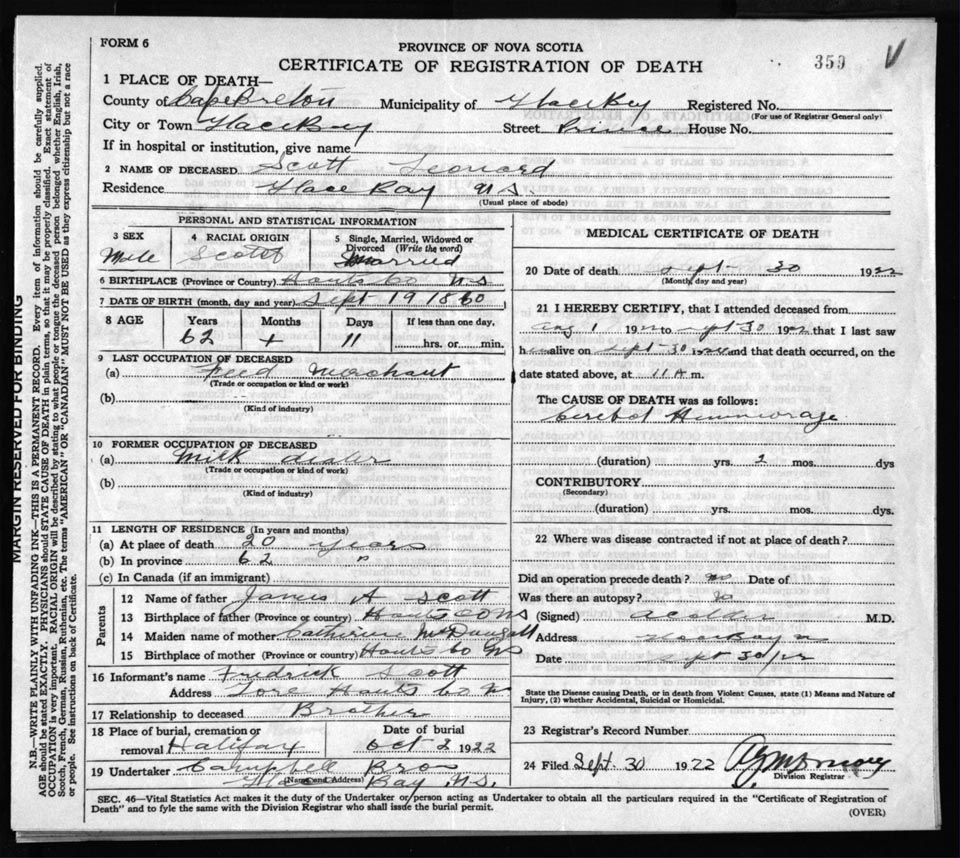 FORM 6
PROVINCE OF NOVA SCOTIA
CERTIFICATE OF REGISTRATION OF DEATH
350
1 PLACE OF DEATH—
County of Cape Breton Municipality of Glace Bay Registered No.
(For use of Registrar General only)
City or Town Glace Bay Street Prince House No.
If in hospital or institution, give name
2 NAME OF DECEASED Scott Leonard
Residence Glace Bay N S
(Usual place of abode)
PERSONAL AND STATISTICAL INFORMATION
3 SEX Male
4 RACIAL ORIGIN Scotch
5 Single, Married, Widowed or Divorced (Write the word) Married
6 BIRTHPLACE (Province or Country) Hants Co N S
7 DATE OF BIRTH (month, day and year) Sept 19 1860
8 AGE Years Months Days If less than one day,
62 + 11 hrs. or min.
9 LAST OCCUPATION OF DECEASED
(a) Feed Merchant
(Trade or occupation or kind or work)
(b)
(Kind of industry)
10 FORMER OCCUPATION OF DECEASED
(a) Milk dealer
(Trade or occupation or kind of work)
(b)
(Kind of industry)
11 LENGTH OF RESIDENCE (In years and months)
(a) At place of death 20 years
(b) In province 62 "
(c) In Canada (if an immigrant)
Parents
12 Name of father James A Scott
13 Birthplace of father (Province or country) Hants Co NS
14 Maiden name of mother Catherine McDougall
15 Birthplace of mother (Province or country) Hants Co NS
16 Informant's name Fredrick Scott
Address Hants Co N
17 Relationship to deceased Brother
18 Place of burial, cremation or Date of burial
removal Halifax Oct 2 1922
19 Undertaker Campbell Bros
(Name and Address) Glace Bay N.S.
MEDICAL CERTIFICATE OF DEATH
20 Date of death Sept 30 1922
(Month, day and year)
21 I HEREBY CERTIFY, that I attended deceased from
Aug 1 1922 to Sept 30 1922 that I last saw
h alive on Sept 30 1922 and that death occurred, on the
date stated above, at 11 A m.
The CAUSE OF DEATH was as follows:
Cerebol Hemmorage
(duration) yrs. 2 mos. dys
CONTRIBUTORY
(Secondary)
(duration) yrs. mos. dys.
22 Where was disease contracted if not at place of death?
Did an operation precede death? no Date of
Was there an autopsy? no
(Signed) M.D.
Address Glace Bay
Date Sept 30/22
State the Disease causing Death, or in death from Violent Causes, state (1) Means and Nature of
Injury, (2) whether Accidental, Suicidal or Homicidal.
23 Registrar's Record Number
24 Filed Sept. 30 1922
Division Registrar
SEC. 46—Vital Statistics Act makes it the duty of the Undertaker or person acting as Undertaker to obtain all the particulars required in the "Certificate of Registration of
Death" and to fyle the same with the Division Registrar who shall issue the burial permit.
(OVER)
MARGIN RESERVED FOR BINDING
N.B.—WRITE PLAINLY, WITH UNFADING INK—THIS IS A PERMANENT RECORD. Every item of information should be carefully supplied.
AGE should be stated EXACTLY. PHYSICIANS should STATE CAUSE OF DEATH in plain terms, so that it may be properly classified. Exact statement of
OCCUPATION is very important. RACIAL ORIGIN will be described by stating to what people or tongue the deceased person belonged whether English, Irish,
Scotch, French, German, Russian, Ruthenian, etc. The terms "AMERICAN" OR "CANADIAN" MUST NOT BE USED as they express citizenship but not a race
or people. See instructions on back of Certificate.